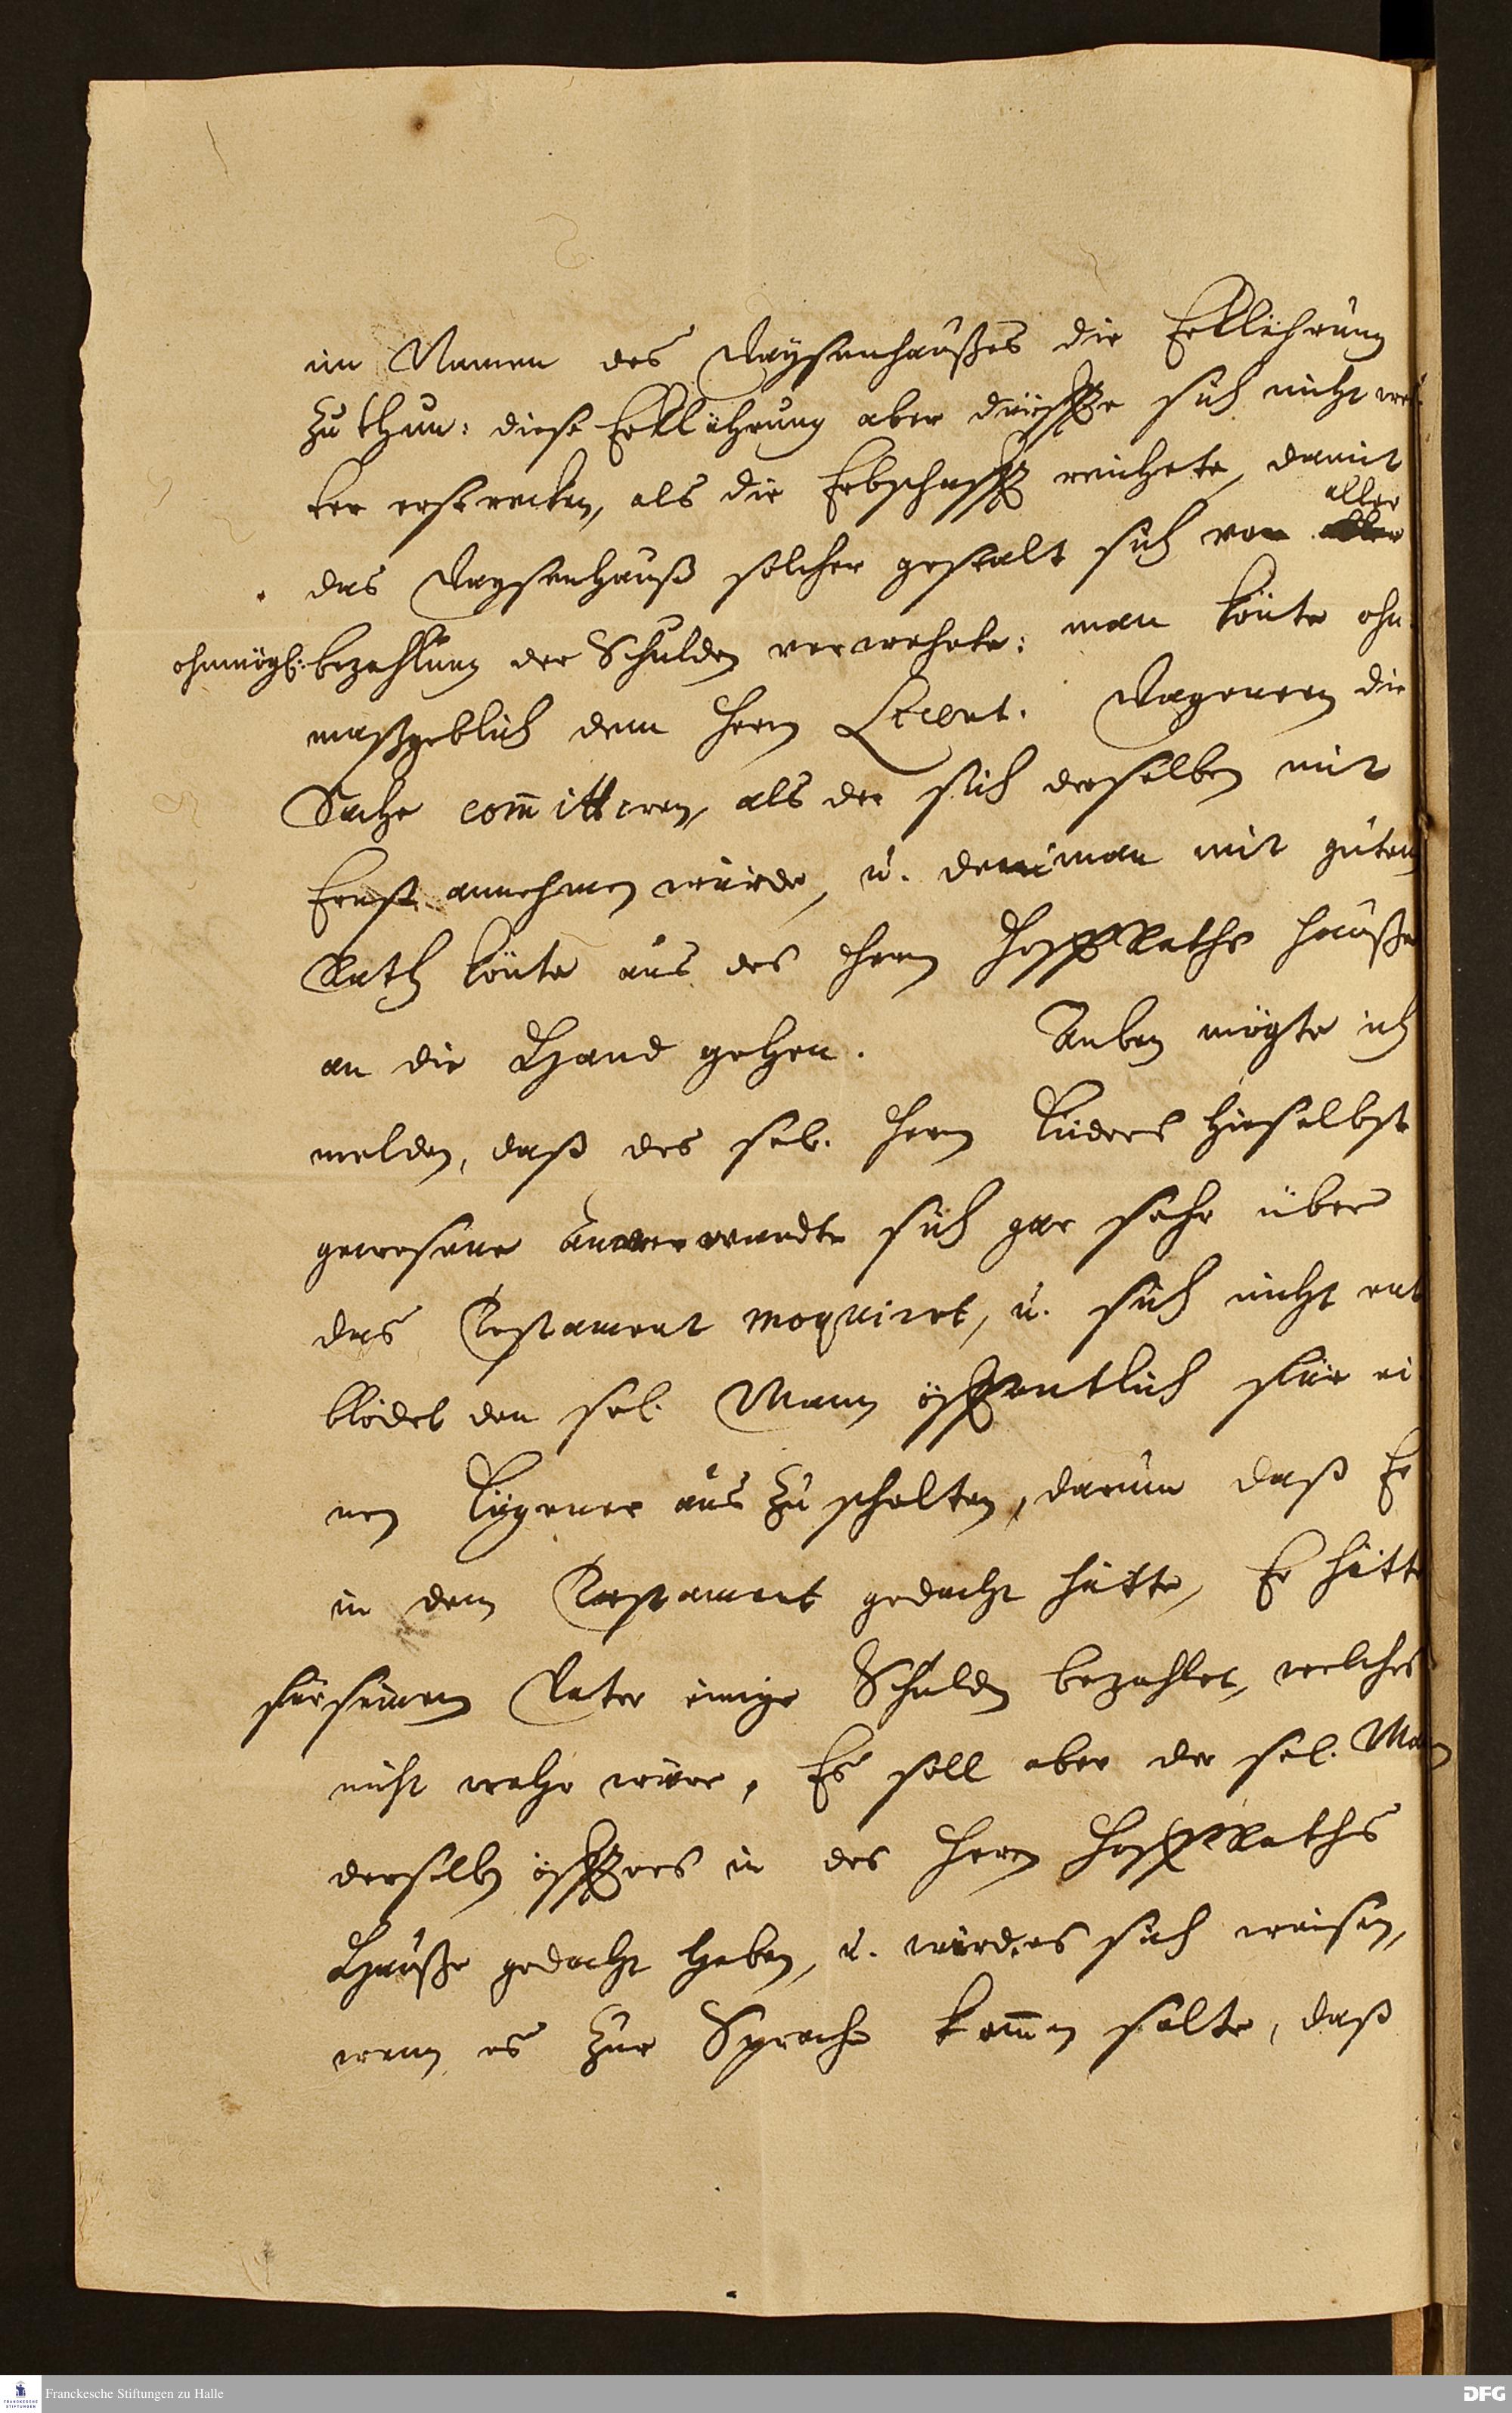 im Namen des Waysenhaußes die Erklährung
zu thun: diese Erklährung aber dürffte sich nicht wei-
ter erstrecken, als die Erbschafft reichete, damit
das Waysenhauß solcher gestalt sich von aller
ohnmögl: bezahlung der Schulden verwahrete: man könte ohn-
maßgeblich dem Herrn Licent. Wagenern die
Sache com̄ittiren, als der sich derselben mit
Ernst annehmen würde, u. dem man mit gutem
Rath könte aus des Herrn HoffRaths Hauße
an die Hand gehen. Anbey mögte ich
melden, daß des sel. Herrn Lüders hieselbst
gewesene Anverwandte sich gar sehr über
das Testament moquiret, u. sich nicht ent
blödet den sel. Mann öffentlich für ei
nen Lügener aus zu schelten, darum daß Er
in dem Testament gedacht hätte, Er hätte
für seinem Vater einige Schulden bezahlet, welches
nicht wahr wäre. Es soll aber der sel. Mann
derselben öffters in des Herrn HoffRaths
Hauße gedacht haben, u. würde es sich weisen,
wenn es zur Sprache kom̄en solte, daß
Franckesche Stiftungen zu Halle
DFG